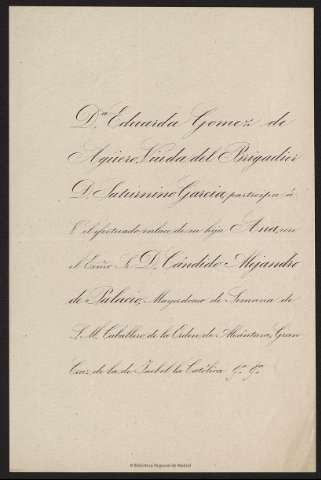 D.ª Eduarda Gomez de
Agüero, Viuda del Brigadier
D. Saturnino Garcia, participa á
V. el efectuado enlace de su hija Ana, con
el Exmo. S. D. Cándido Alejandro
de Palacio, Mayordomo de Semana de
S. M. Caballero de la Orden de Alcántara, Gran
Cruz de la de Isabel la Católica
© Biblioteca Regional de Madrid